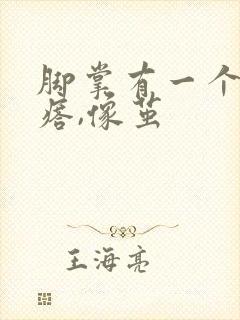 脚掌有一个
痞,像茧
王海亮